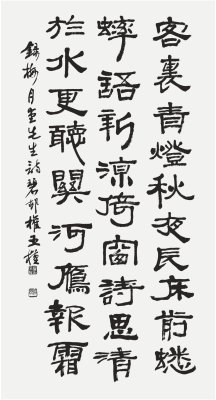 客裏青燈秋夜長床前蟋
蟀語新涼倚窗詩思清
於水更聽關河鴈報霜
錄梅月堂先生詩碧邨權玉